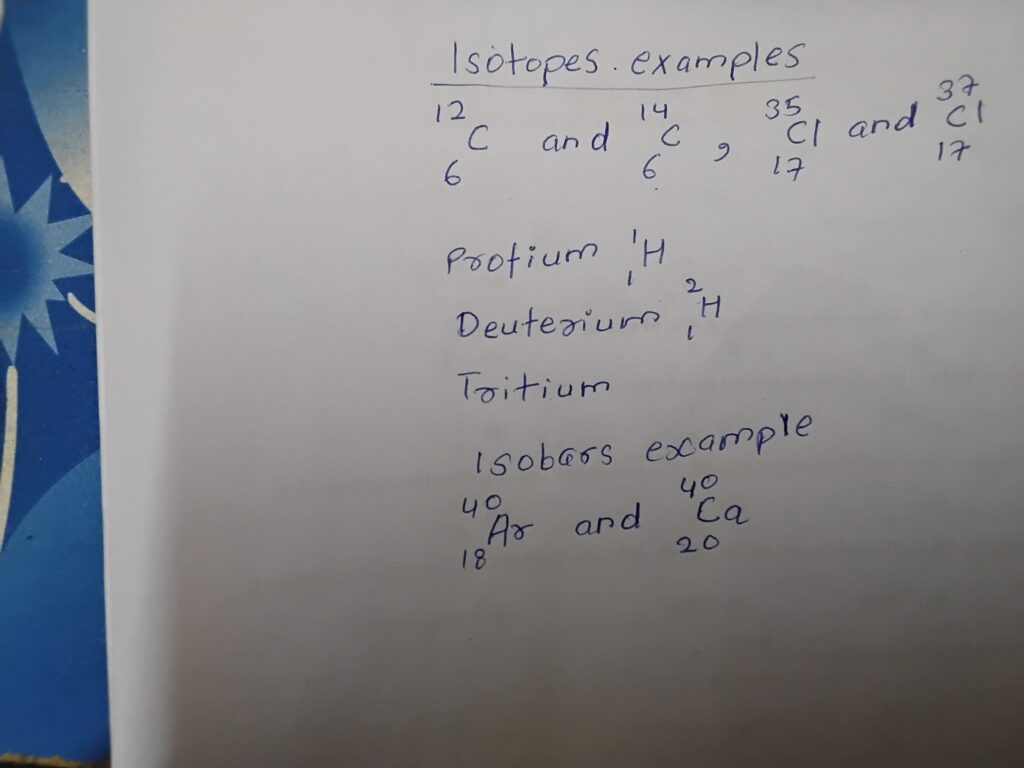 Isotopes. examples
¹²₆C and ¹⁴₆C, ³⁵₁₇Cl and ³⁷₁₇Cl
Protium ¹₁H
Deuterium ²₁H
Tritium
Isobars example
⁴⁰₁₈Ar and ⁴⁰₂₀Ca